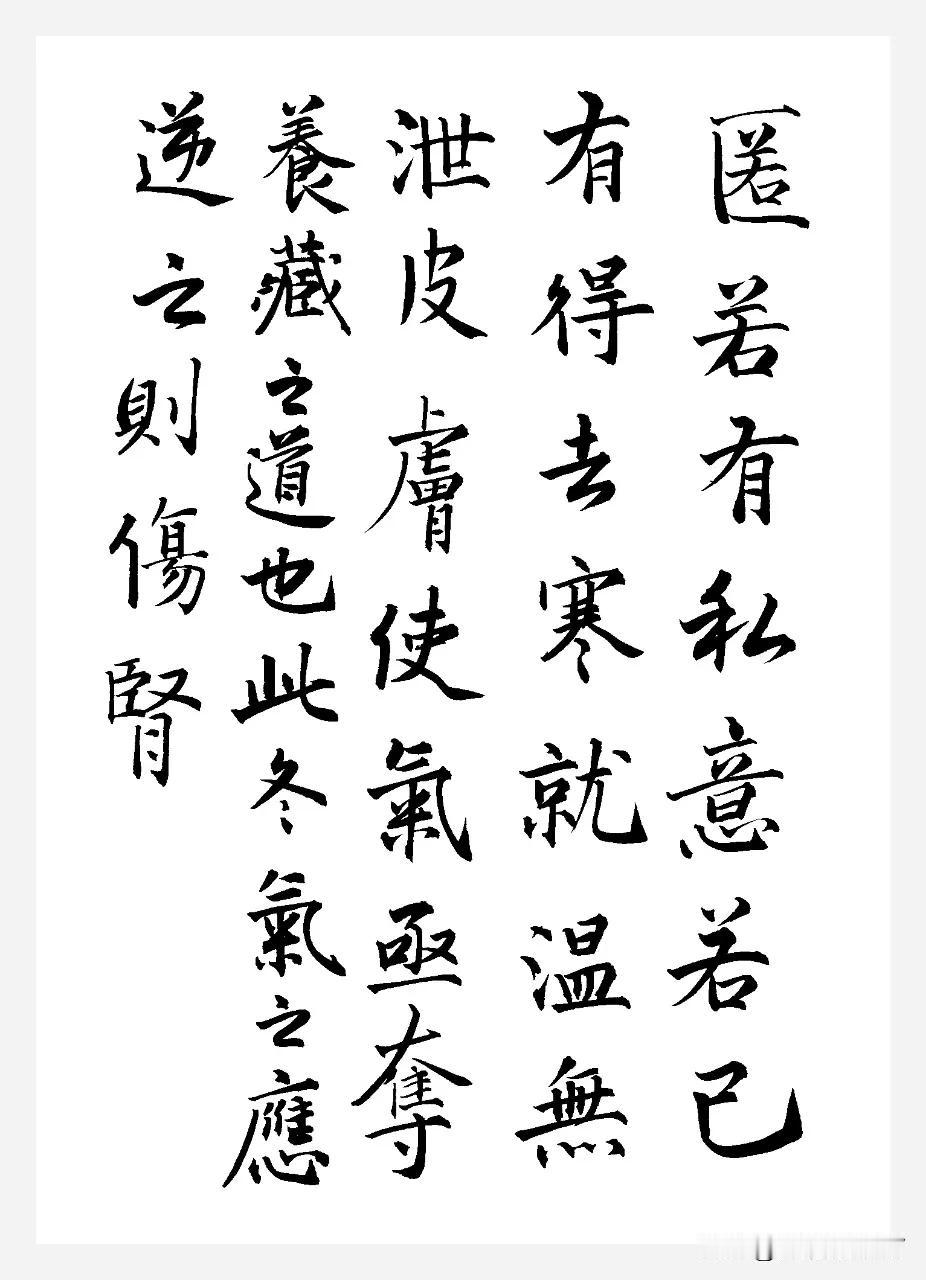 匿若有私意若已
有得去寒就温無
泄皮膚使氣亟奪
養藏之道也此冬氣之應
逆之則傷腎